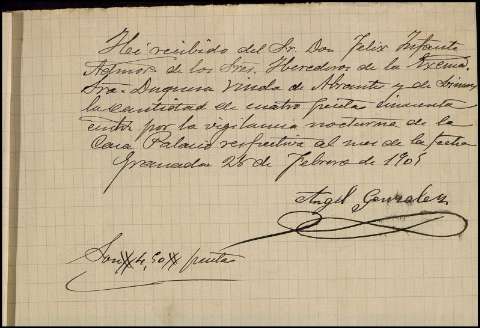 He recibido del Sr. Don Felix Infante
Admor. de los Sres. Herederos de la Excma.
Sra. Duquesa Viuda de Abrantes y de
la cantidad de cuatro pesetas cincuenta
cents por la vigilancia nocturna de la
Casa Palacio respectiva al mes de la fecha
Granada 28 de Febrero de 1905
Angel Gonzalez
Son 4,50 pesetas